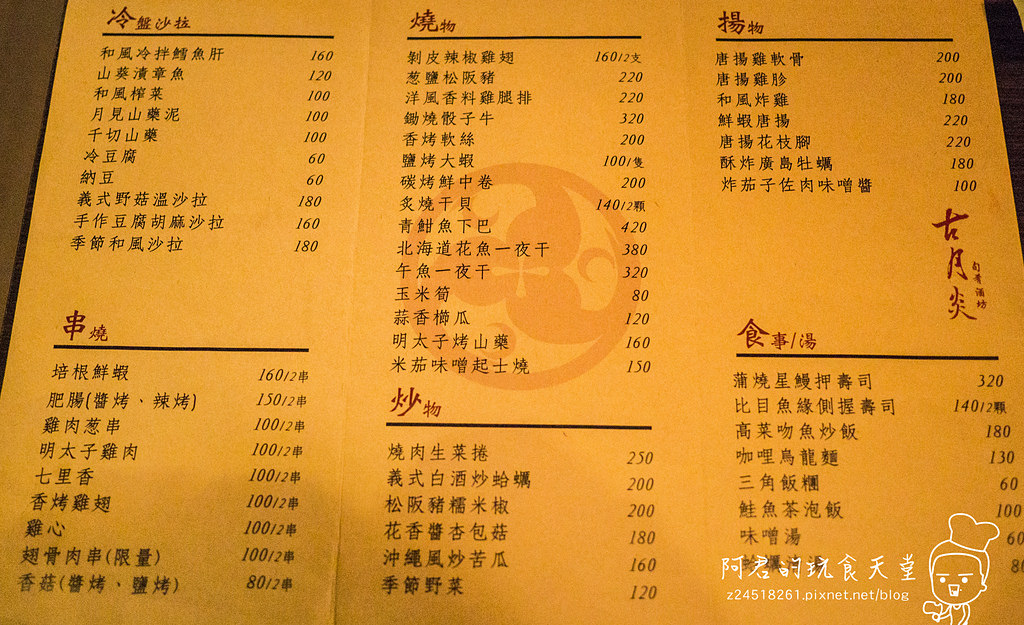 冷盤沙拉
和風冷拌鱈魚肝 160
山葵漬章魚 120
和風榨菜 100
月見山藥泥 100
千切山藥 100
冷豆腐 60
納豆 60
義式野菇溫沙拉 180
手作豆腐胡麻沙拉 160
季節和風沙拉 180
串燒
培根鮮蝦 160/2串
肥腸(醬烤、辣烤) 150/2串
雞肉葱串 100/2串
明太子雞肉 100/2串
七里香 100/2串
香烤雞翅 100/2串
雞心 100/2串
翅骨肉串(限量) 100/2串
香菇(醬烤、鹽烤) 80/2串
燒物
剝皮辣椒雞翅 160/2支
葱鹽松阪豬 220
洋風香料雞腿排 220
鋤燒骰子牛 320
香烤軟絲 200
鹽烤大蝦 100/隻
碳烤鮮中卷 200
炙燒干貝 140/2顆
青魽魚下巴 420
北海道花魚一夜干 380
午魚一夜干 320
玉米筍 80
蒜香櫛瓜 120
明太子烤山藥 160
米茄味噌起士燒 150
炒物
燒肉生菜捲 250
義式白酒炒蛤蠣 200
松阪豬糯米椒 200
花香醬杏包菇 180
沖繩風炒苦瓜 160
季節野菜 120
揚物
唐揚雞軟骨 200
唐揚雞胗 200
和風炸雞 180
鮮蝦唐揚 220
唐揚花枝腳 220
酥炸廣島牡蠣 180
炸茄子佐肉味噌醬 100
古月炎
旬肴酒坊
食事/湯
蒲燒星鰻押壽司 320
比目魚緣側握壽司 140/2顆
高菜吻魚炒飯 180
咖哩烏龍麵 130
三角飯糰 60
鮭魚茶泡飯 100
味噌湯 60
阿君的玩食天堂
z24518261.pixnet.net/blog